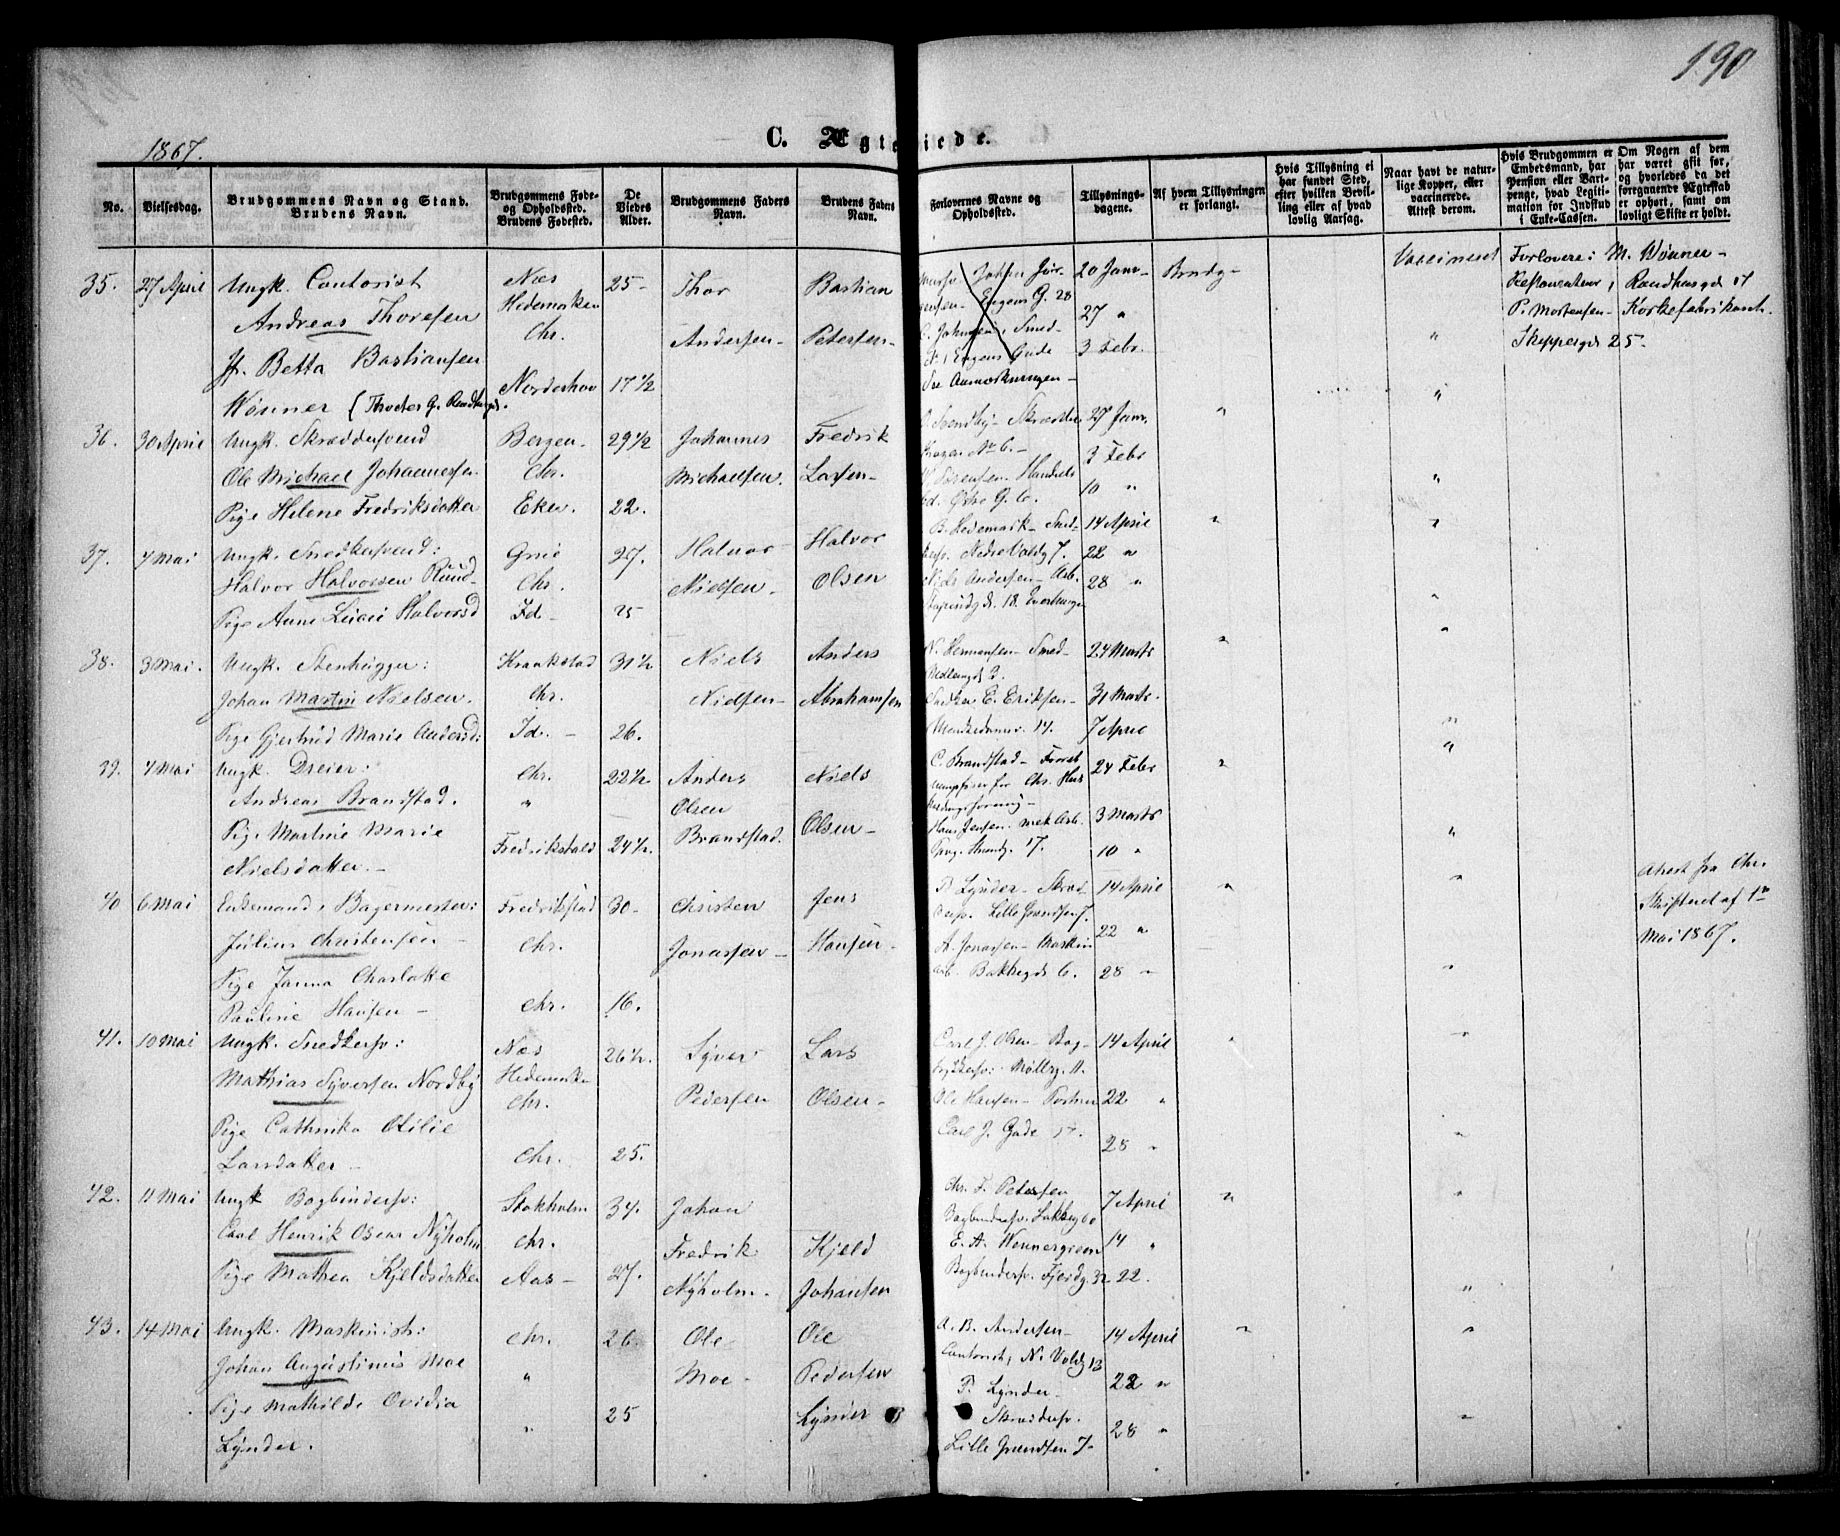 190
1867.
C. Ægteviede.
No.
Vielsesdag.
Brudgommens Navn og Stand.
Brudens Navn.
Brudgommens Føde-
og Opholdssted.
Brudens Fødested.
De
Viedes
Alder.
Brudgommens Faders
Navn.
Brudens Faders
Navn.
Forlovernes Navne og
Opholdssted.
Tillysnings-
dagene.
Af hvem Tillysningen
er forlangt.
Hvis Tillysning ei
har fundet Sted,
efter hvilken Bevil-
ling eller af hvad
lovlig Aarsag.
Naar havt de natur-
lige Kopper, eller
vaccinerede.
Attest derom.
Hvis Brudgommen er
Embedsmand, har
Pension eller Vart-
penge, hvad Legiti-
mation for Indskud
i Enke-Cassen.
Om Nogen af dem
har været gift før,
og hvorledes da det
foregaaende Ægteskab
er ophørt, samt om
lovligt Skifte er holdt.
35. 27 April Ungk. Contorist Næs 25 - Thor Bastian
Hedemarken
Andreas Thoresen Chr. Andersen - Petersen -
Jf. Betta Bastiansen
Wønner Norderhov 17 1/2
Johsen
Engens G. 28
Engens Gade
See Anmærkningen -
20 Janr - Brudg -
27 "
3 Febr.
Vaccineret
Forlovere: M. Wønner -
Restaurateur, Raadhusgd 17
P. Mortensen - Korkefabrikant.
Skippergd 25 -
36. 30 April Ungk. Skræddersvend Bergen - 29 1/2 Johannes Fredrik
Ole Michael Johannessen Chr. Michaelsen. Larsen -
Pige Helene Fredriksdatter Eker. 22.
27 Janr.
3 Febr
10 "
37. 4 Mai Ungk. Snedkersvend: Grue 27. Halvor - Halvor
Halvor Halvorsen Ruud - Chr. Nielsen - Olsen
Pige Anne Halversd Id - 25
B. Hedemark - 14 April
22 "
Niels Andersen - Arb. 28 "
38. 3 Mai. Ungk. Stenhugger: Kraakstad 31 1/2 Niels Anders
Johan Martin Nielsen. Chr. Nielsen - Abrahamsen
Pige Gjertrud Marie Andersd: Id. - 26.
N. Hermansen - Smed - 24 Marts
E. Eriksen - 31 Marts.
14. 7 April
39. 4 Mai Ungk. Dreier: Chr. 22 1/2 Anders Niels
Andreas Brandstad. " Olsen Olsen -
Pige Martine Marie Fredrikshald 24 1/2. Brandstad.
Nielsdatter. -
C. Brandstad - 24 Febr
for Chr.
Hans Jensen. mek Arb. 3 Marts
17. 10 "
40 6 Mai Enkemand, Bagermester: Fredrikstad 30 - Christen Jens
Julius Christensen - Chr. Jonassen - Hansen -
Pige Janna Charlotte
Pauline Hansen - Chr. 16.
P. Lynder - Skræd 14 April
Lille Grændsen 7. 22 "
A. Jonassen - Maskin
arb. Bakkegd 6. 28 "
Attest fra Chr.
Skifteret af 1ste
Mai 1867.
41. 10 Mai Ungk. Snedkersv: Næs 26 1/2. Syver Lars
Mathias Syversen Nordby Hedemarken Pedersen Olsen -
Chr.
Pige Cathrika Otilie
Larsdatter - Chr. 25.
Carl J. Olsen - Bog- 14 April
trykkersv: Møllerg. 11.
Ole Hansen - 22 "
Carl J. Gade 14. 28 "
42. 11 Mai Ungk Bogbindersv: Stokholm 34. Johan
Carl Henrik Oscar Nyholm Chr. Fredrik Kjeld
Pige Mathea Kjeldsdatter Aas - 27. Nyholm. Johansen
Chr. F. Petersen 7 April
Bogbindersv.
E. A. Wennergreen 14 "
Bogbindersv. Fjerdg. 32 22.
43. 14 Mai Ungk. Maskinist: Chr. 26 Ole Ole
Johan Augustinus Moe " Moe - Pedersen
Pige Mathilde Ovidia 25 Lynder
Lynder. "
A. B. Andersen - 14 April
Contorist, N. Voldg 13
P. Lynder - 22 "
Skræddersv. 28 "
Lille Grændsen 7 -